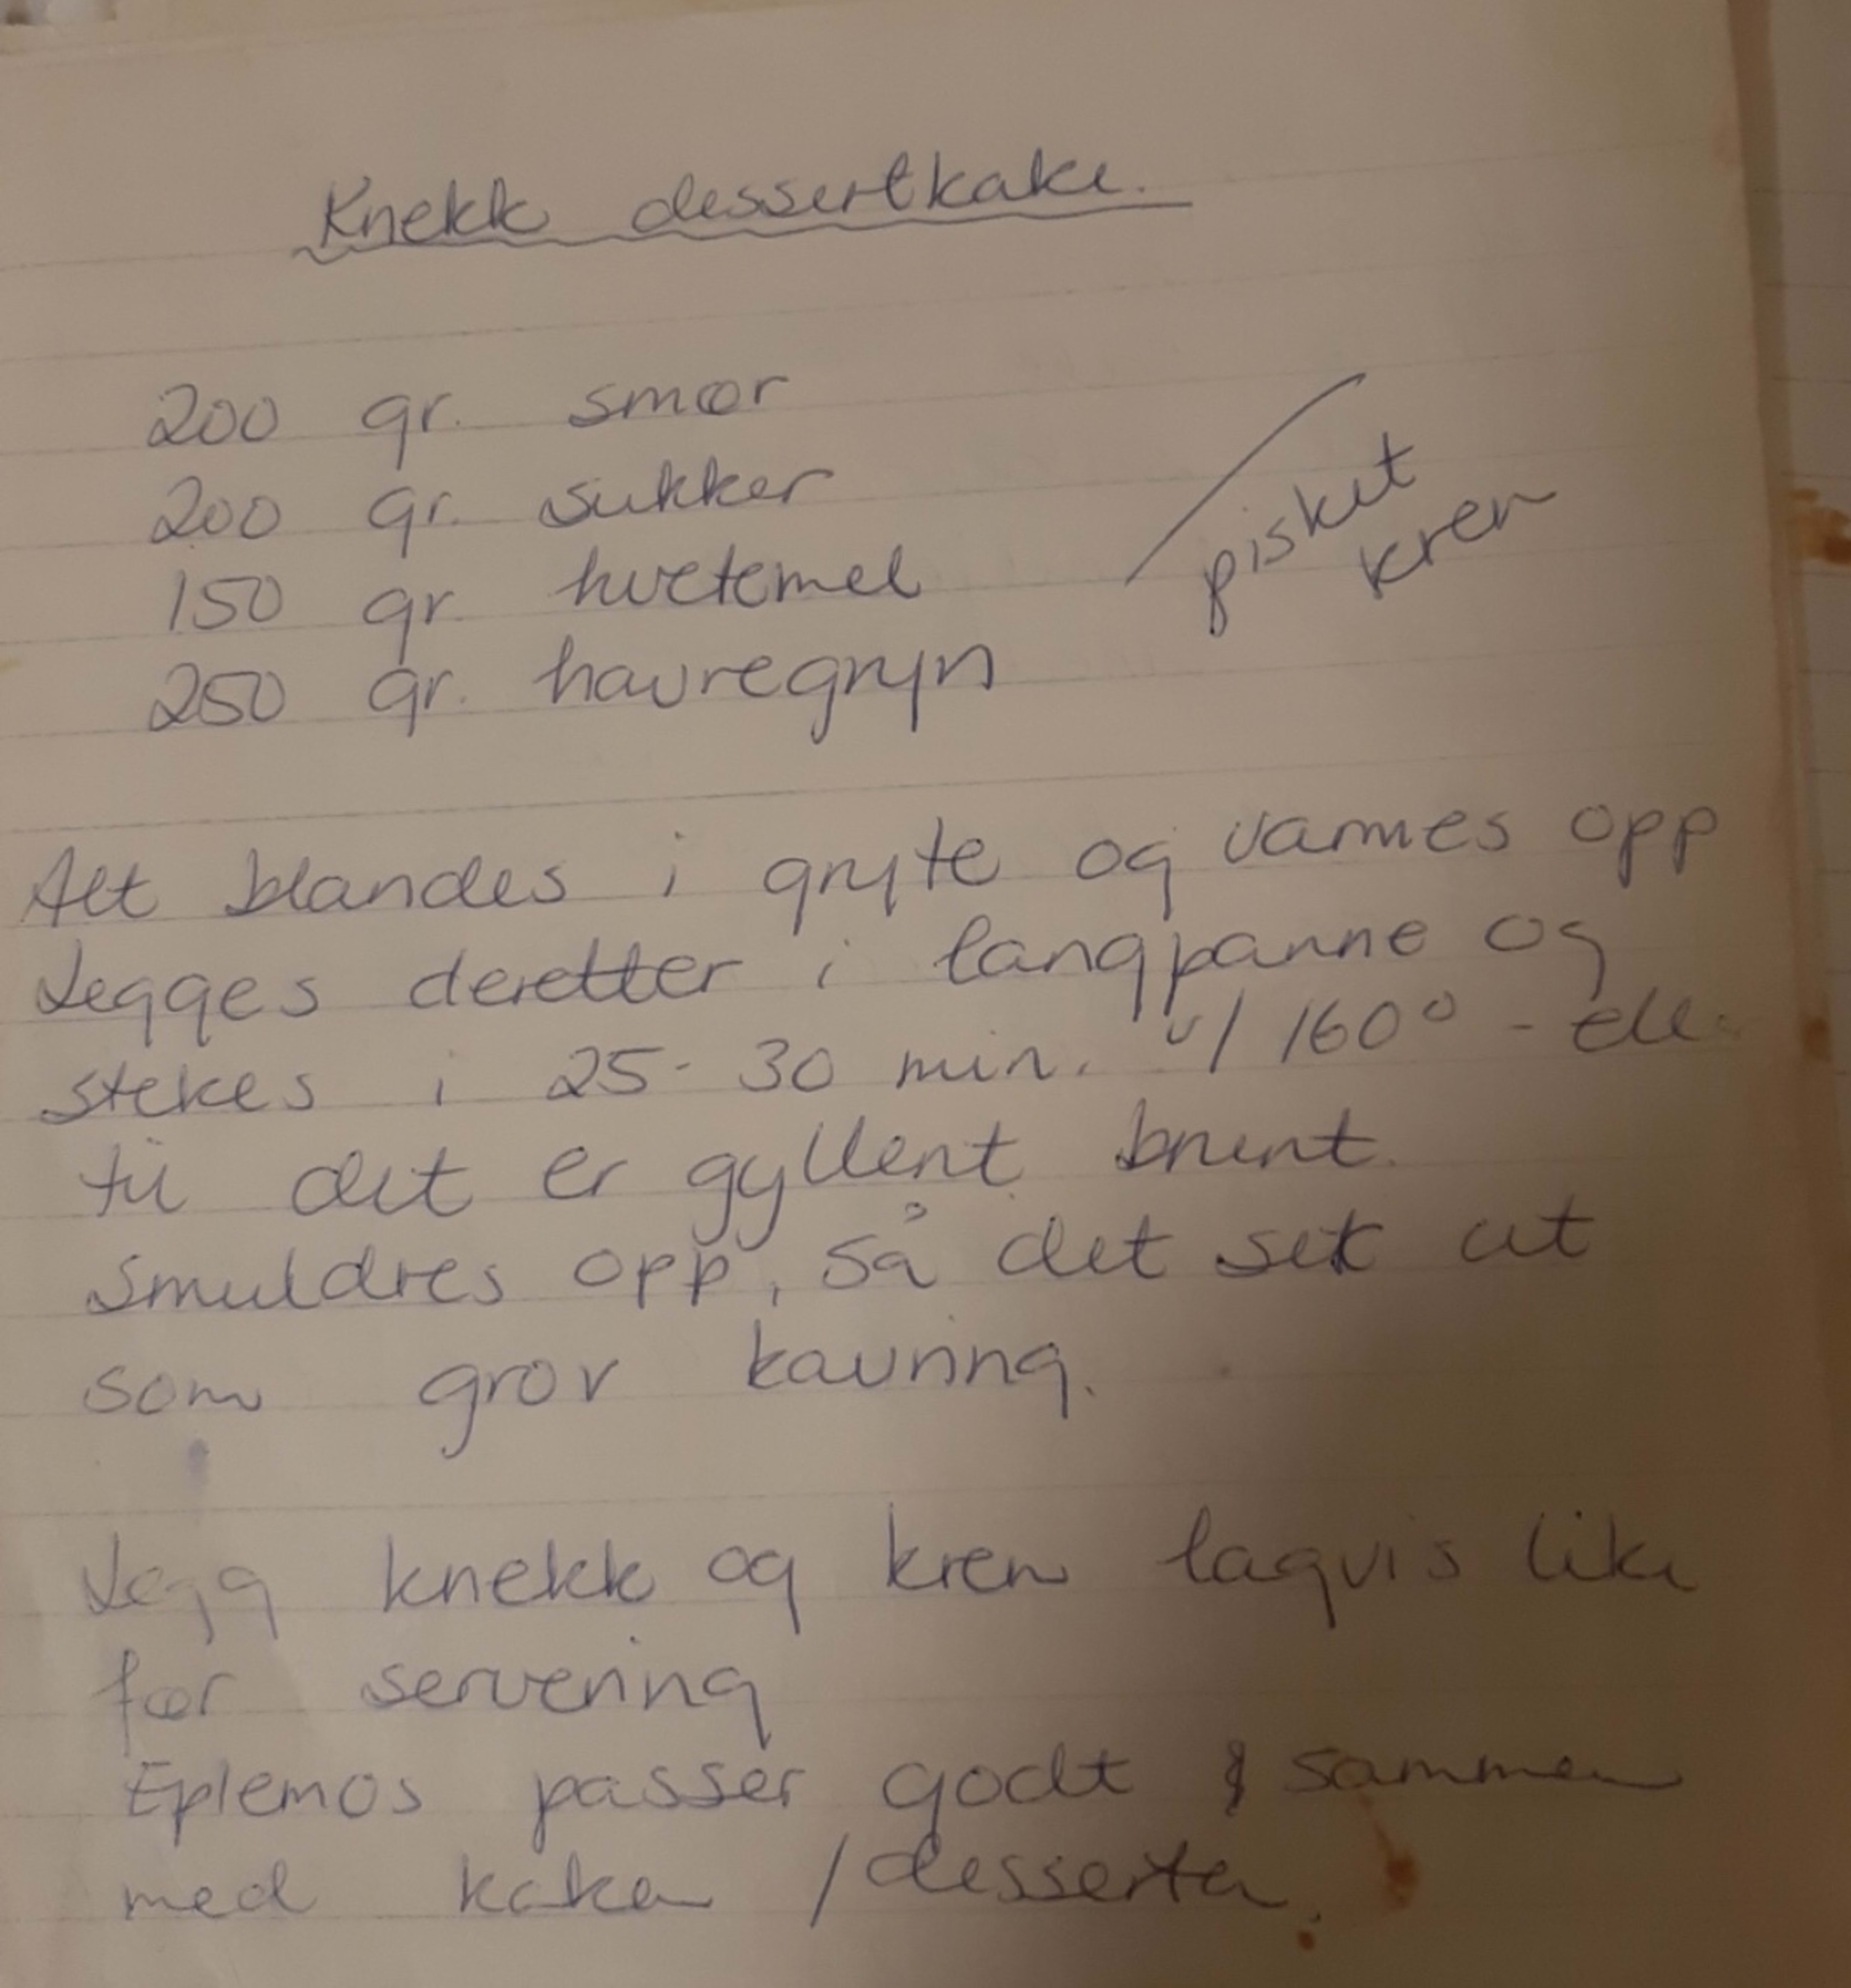 Knekk dessertkake.
200 gr. smør
200 gr. sukker
150 gr. hvetemel
250 gr. havregryn
/ pisket
krem
Alt blandes i gryte og varmes opp
Legges deretter i langpanne og
stekes i 25-30 min. v/ 160° - eller
til det er gyllent brunt.
Smuldres opp, så det set ut
som grov kavring.
Legg knekk og krem lagvis like
før servering
Eplemos passer godt sammen
med kaken / desserten.